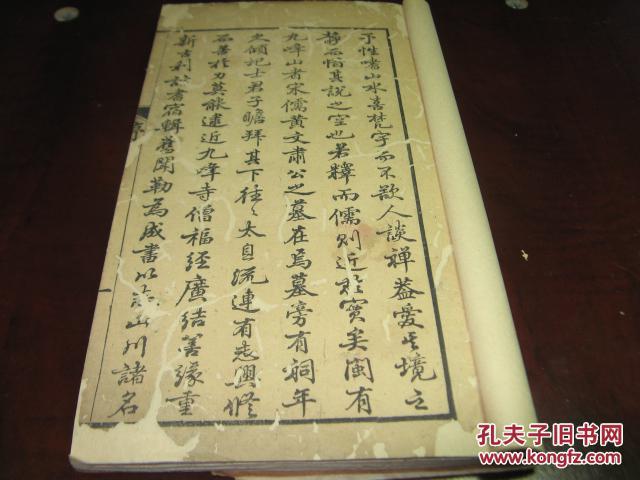 予性嗜山水喜梵宇而不歡人談禪蓋愛其境之
靜而惱其說之空也若釋而儒則近於實矣閩有
九峰山者宋儒黃文肅公之墓在焉墓旁有祠年
久傾圮士君子瞻拜其下往々太息流連有志興修
而善於力莫能逮近九峰寺僧福經廣結善緣重
新古剎記書宿輯舊聞勒為成書以志山川諸名
序
孔夫子旧书网
www.kongfz.com